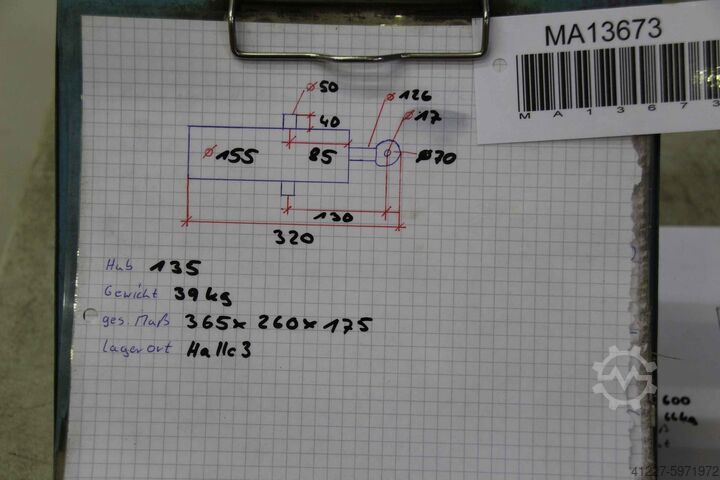 MA13673
M A 1 3 6 7 3
ø50
40
ø126
ø17
ø155
85
ø70
130
320
Hub 135
Gewicht 39kg
ges. Maß 365x 260x 175
Lagerort Halle 3
600
kg
41227-5971972